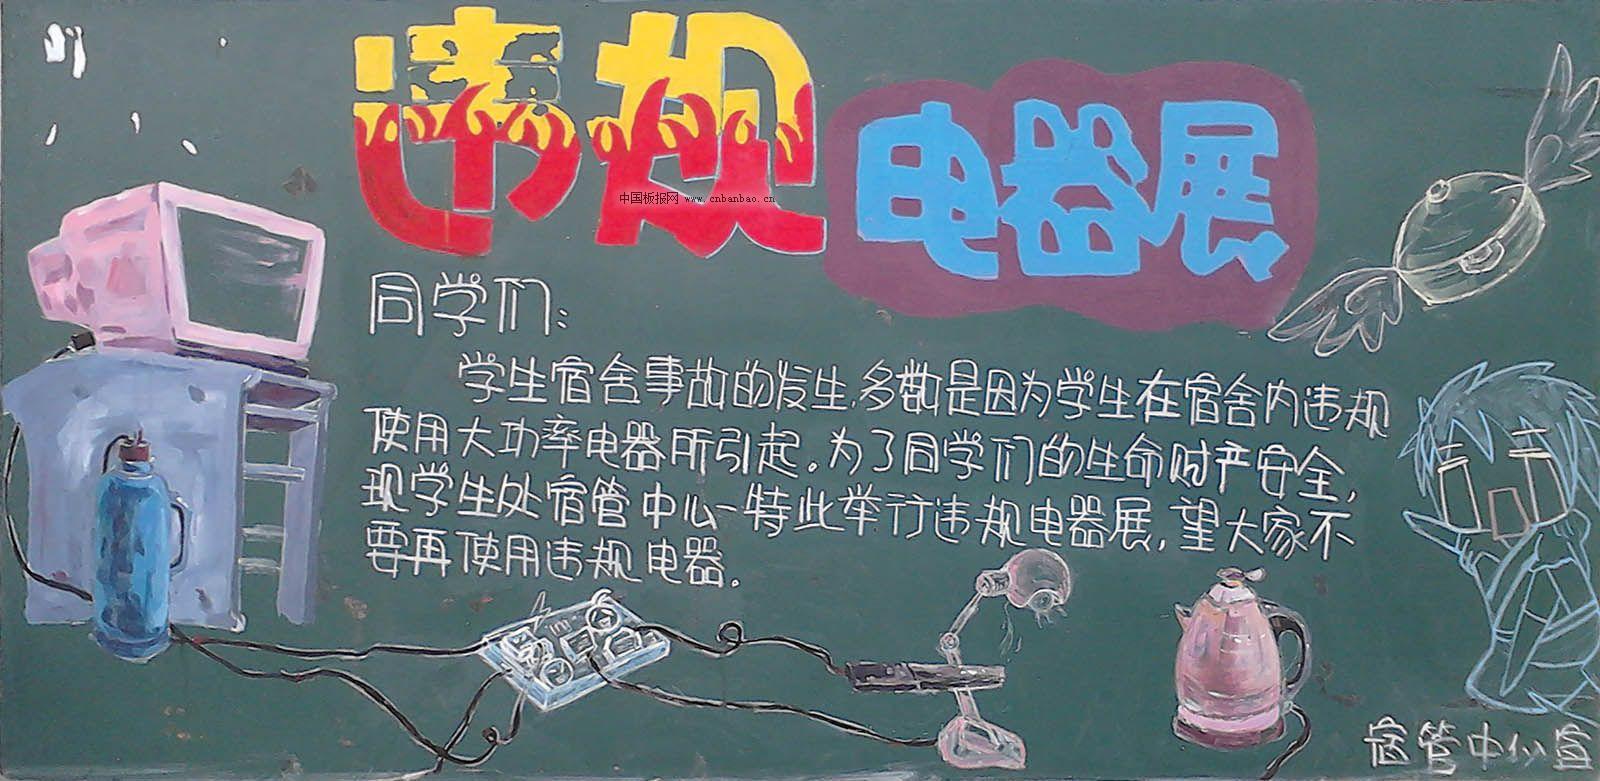 违规电器展
中国板报网 www.cnbanbao.cn
同学们：
学生宿舍事故的发生,多数是因为学生在宿舍内违规
使用大功率电器所引起。为了同学们的生命财产安全,
现学生处宿管中心-特此举行违规电器展,望大家不
要再使用违规电器。
宿管中心宣